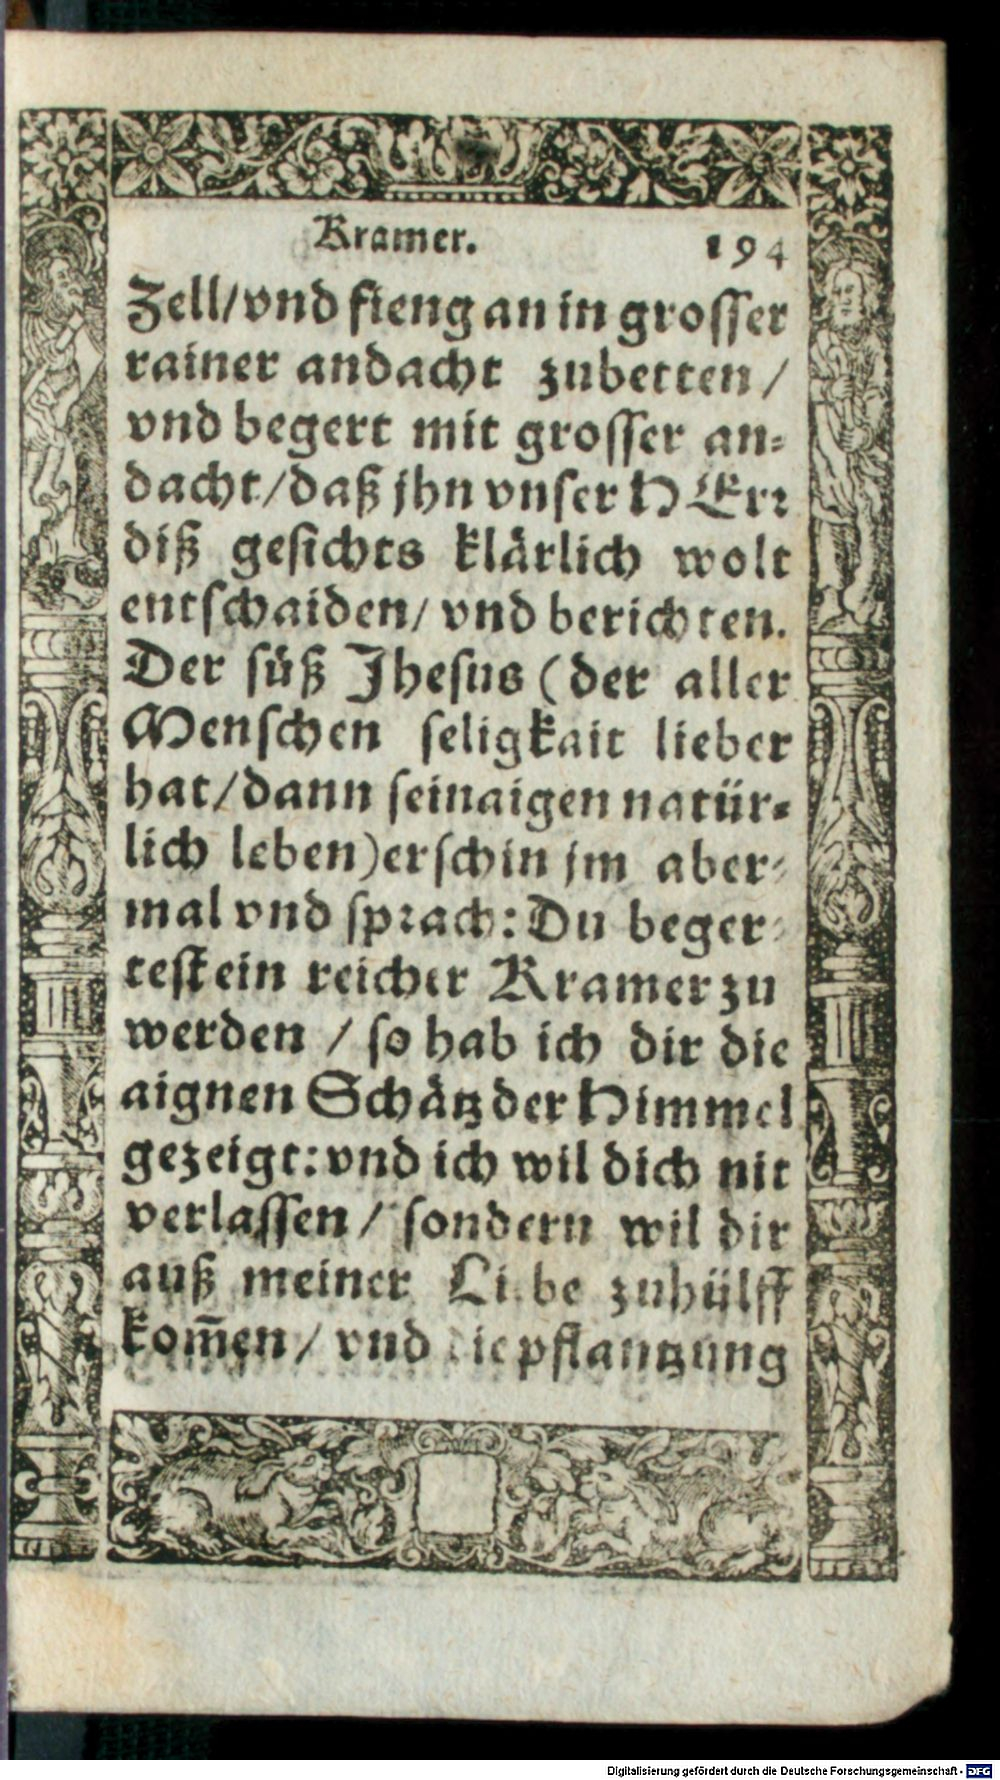 Kramer. 194
Zell/vnd fieng an in grosser
rainer andacht zubetten /
vnd begert mit grosser an-
dacht/daß jhn vnser HErr
diß gesichts klärlich wolt
entschaiden/ vnd berichten.
Der süß Jhesus (der aller
Menschen seligkait lieber
hat/dann sein aigen natür-
lich leben) erschin jm aber-
mal vnd sprach: Du beger-
test ein reicher Kramer zu
werden / so hab ich dir die
aignen Schätz der Himmel
gezeigt: vnd ich wil dich nit
verlassen / sondern wil dir
auß meiner Liebe zuhülff
kom̃en / vnd die pflantzung
Digitalisierung gefördert durch die Deutsche Forschungsgemeinschaft - DFG